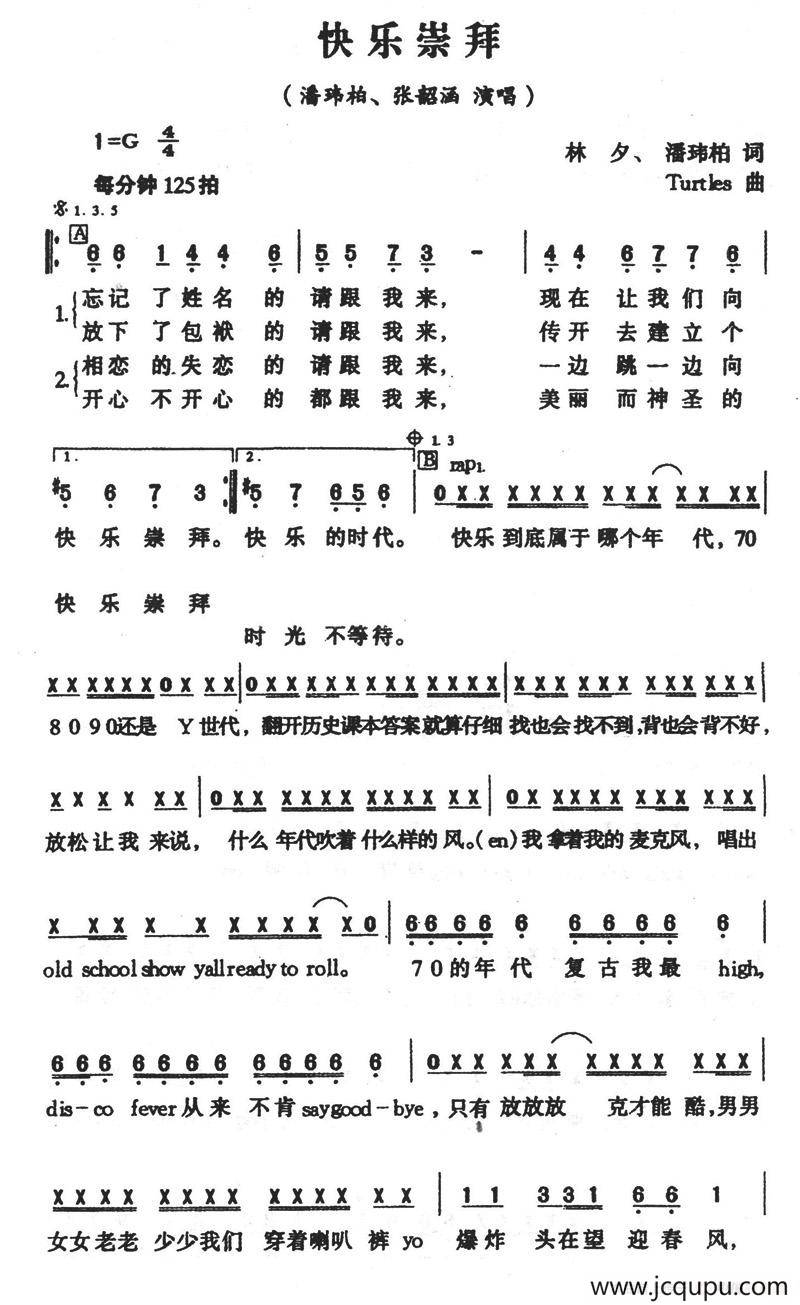 快乐崇拜
（潘玮柏、张韶涵 演唱）
1=G 4/4
林 夕、 潘玮柏 词
每分钟125拍
Turtles 曲
1. 3. 5
A
6 6 1 4 4 6 | 5 5 7 3 - | 4 4 6 7 7 6 |
1. 忘记 了 姓名 的 请跟 我 来， 现在 让我们向
放下 了 包袱 的 请跟 我 来， 传开 去建立个
2. 相恋 的 失恋 的 请跟 我 来， 一边 跳一边向
开心 不 开心 的 都跟 我 来， 美丽 而神圣的
1. 2. 1. 3
B rap1.
#5 6 7 3 :| #5 7 6 5 6 | 0 X X X X X X X X X X X X X |
快 乐 崇 拜。 快 乐 的时代。 快乐 到底属于 哪个年 代，70
快 乐 崇 拜
时 光 不等待。
X X X X X X 0 X X X | 0 X X X X X X X X X X X X X X | X X X X X X X X X X X X X |
8 0 9 0还是 Y 世代， 翻开历史课本答案就算仔细 找也会找不到，背也会背不好，
X X X X X X | 0 X X X X X X X X X X X X | 0 X X X X X X X X X X X X |
放松让我 来说， 什么 年代吹着 什么样的 风。(en)我 拿着我的 麦克风， 唱出
X X X X X X X X X X X X 0 | 6 6 6 6 6 6 6 6 6 6 6 |
old school show yall ready to roll。 7 0的年 代 复古我最 high，
6 6 6 6 6 6 6 6 6 6 6 6 | 0 X X X X X X X X X X X X X |
dis-co fever从来 不肯 say good-bye，只有 放放放 克才能 酷，男男
X X X X X X X X X X X X X X | 1 1 3 3 1 6 6 1 |
女女老老 少少我们 穿着喇叭 裤 yo 爆炸 头在望 迎 春 风，
www.jcqupu.com